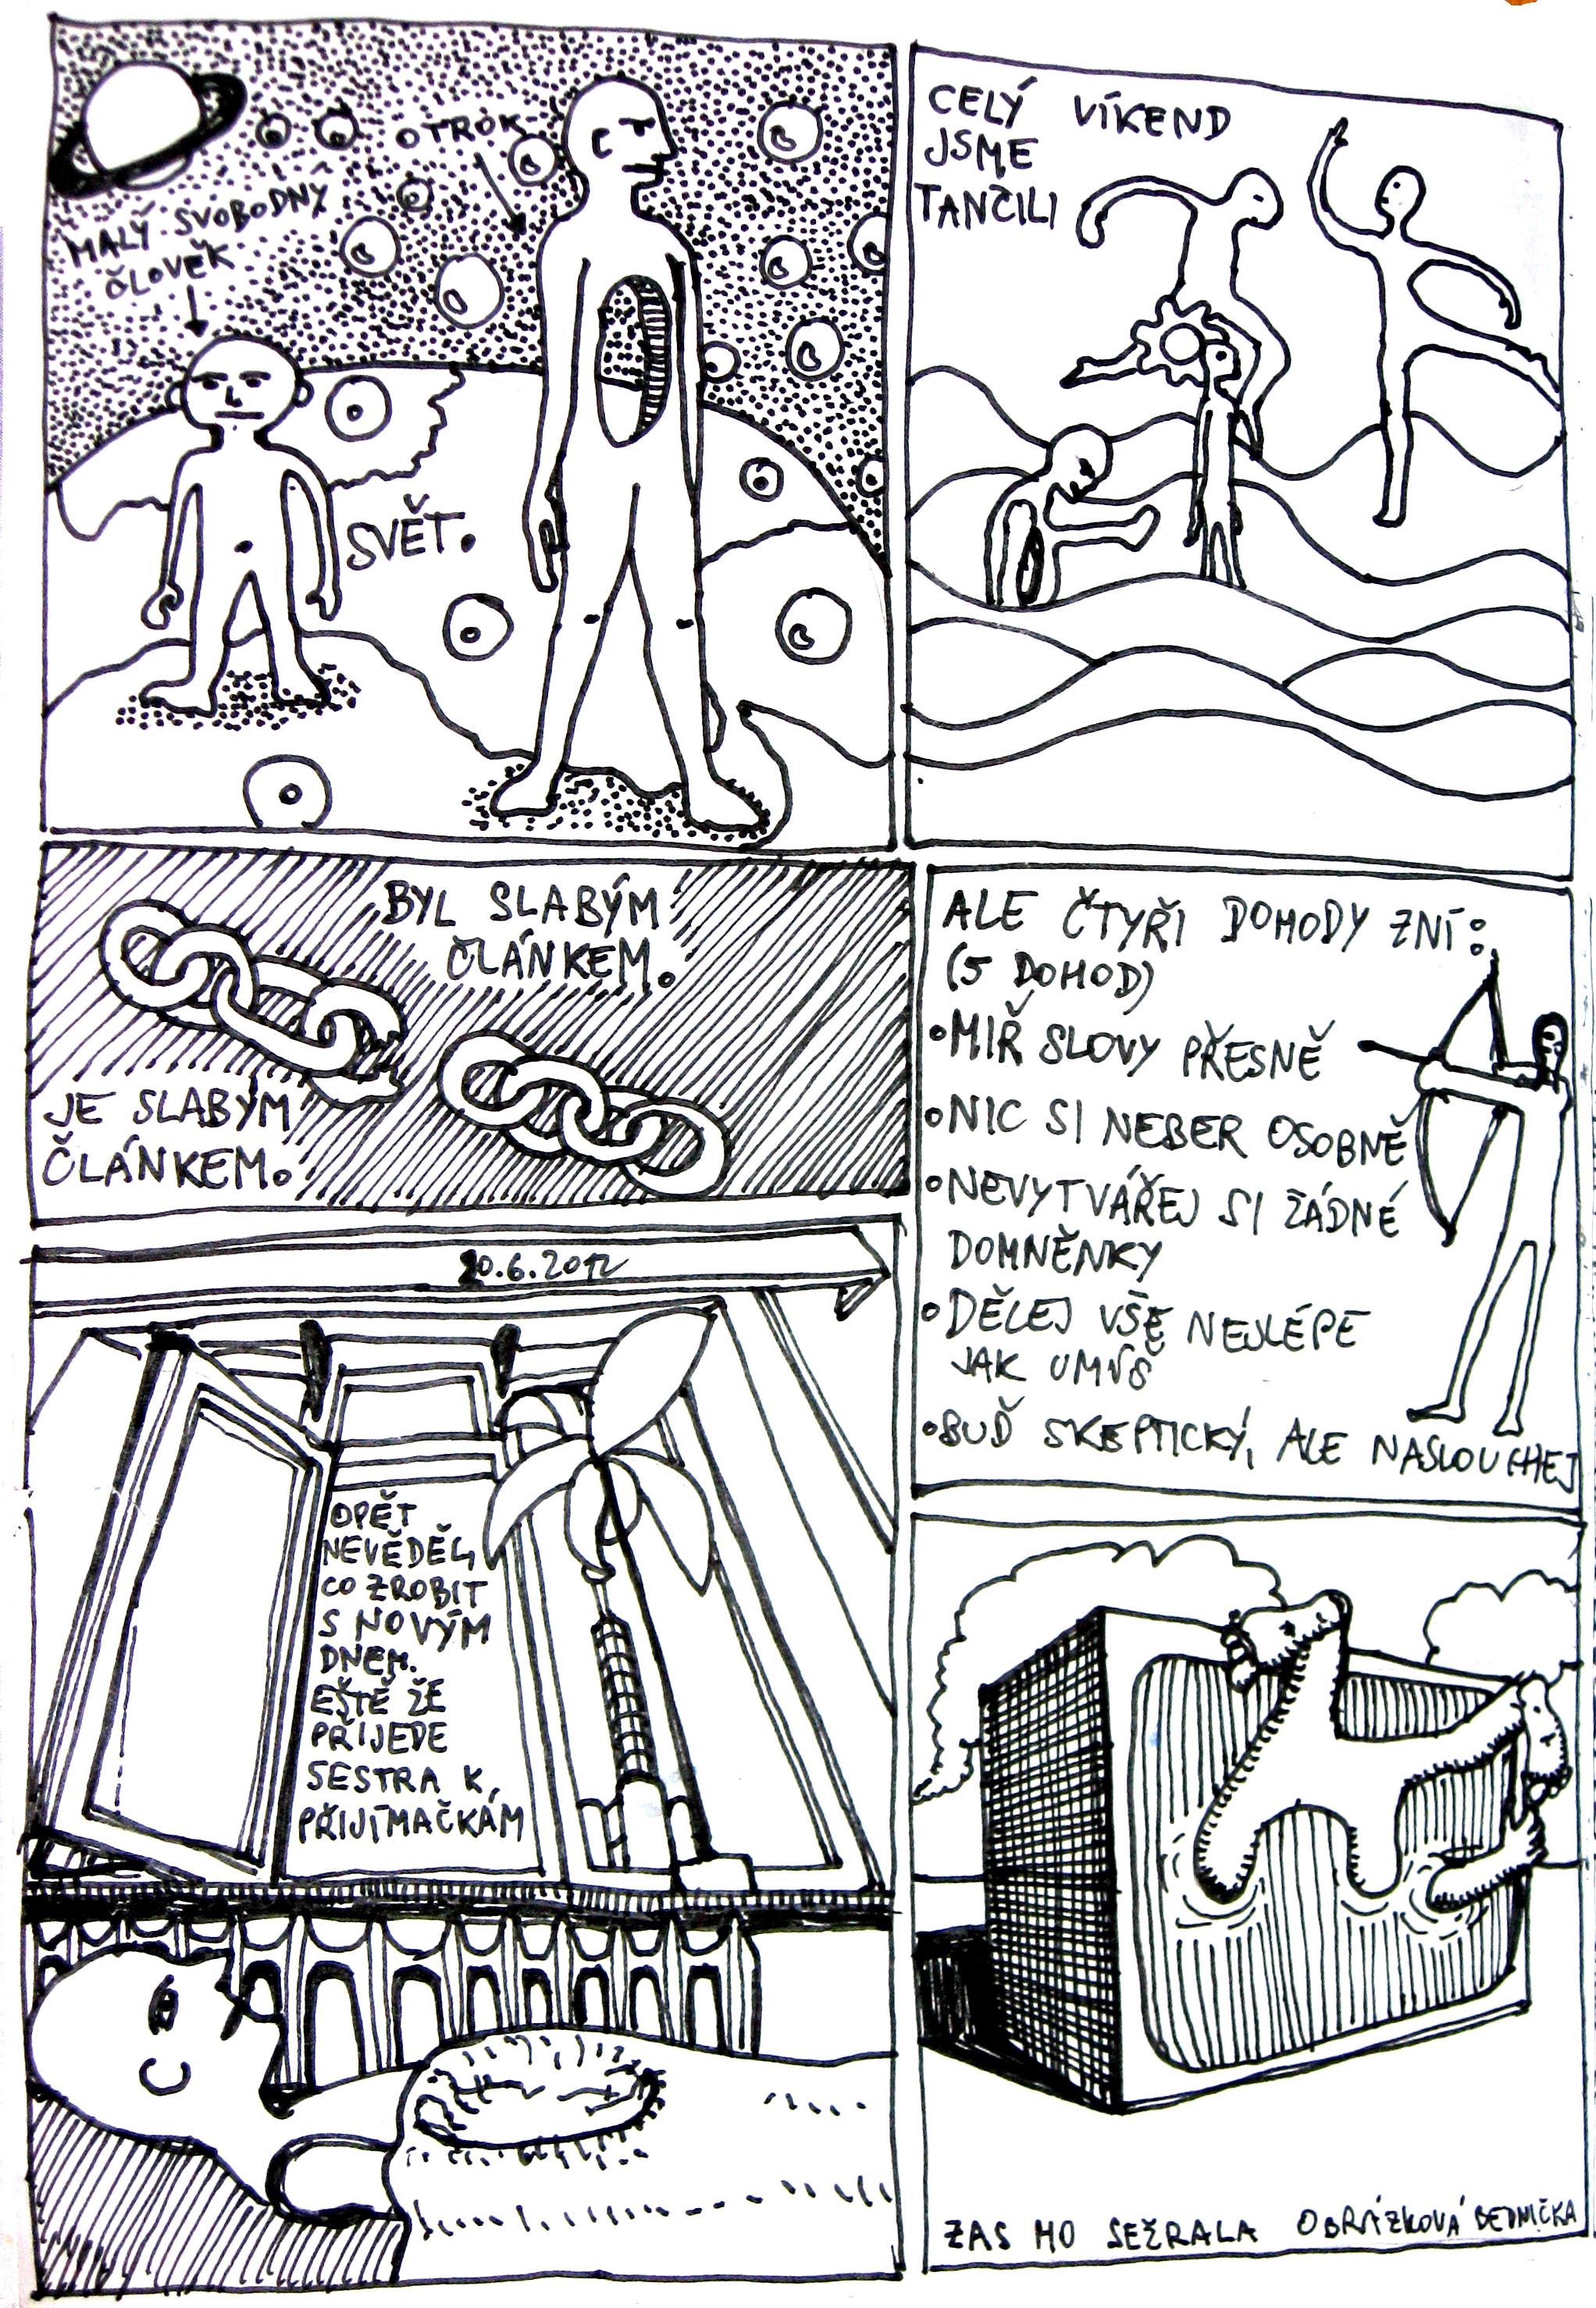 OTROK
MALÝ SVOBODNÝ
ČLOVĚK
SVĚT.
CELÝ VÍKEND
JSME
TANČILI
BYL SLABÝM
ČLÁNKEM.
JE SLABÝM
ČLÁNKEM.
ALE ČTYŘI DOHODY ZNÍ:
(5 DOHOD)
•MIŘ SLOVY PŘESNĚ
•NIC SI NEBER OSOBNĚ
•NEVYTVÁŘEJ SI ŽÁDNÉ
DOMNĚNKY
•DĚLEJ VŠE NEJLÉPE
JAK UMÍŠ
•BUĎ SKEPTICKÝ, ALE NASLOUCHEJ
20.6.2012
OPĚT
NEVĚDĚL,
CO ZROBIT
S NOVÝM
DNEM.
EŠTĚ ŽE
PŘIJEDE
SESTRA K
PŘIJÍMAČKÁM
ZAS HO SEŽRALA OBRÁZKOVÁ BEDNIČKA